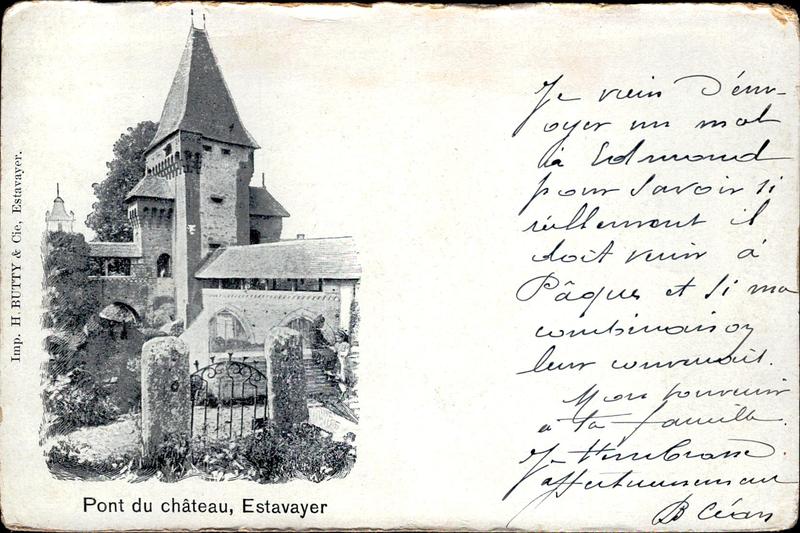 Imp. H. BUTTY & Cie, Estavayer.
Pont du château, Estavayer
Je viens d'env-
oyer un mot
à Edmond
pour savoir si
réellement il
doit venir à
Pâques et si ma
combinaison
leur convenait.
Mon souvenir
à ta famille.
Je t'embrasse
affectueusement